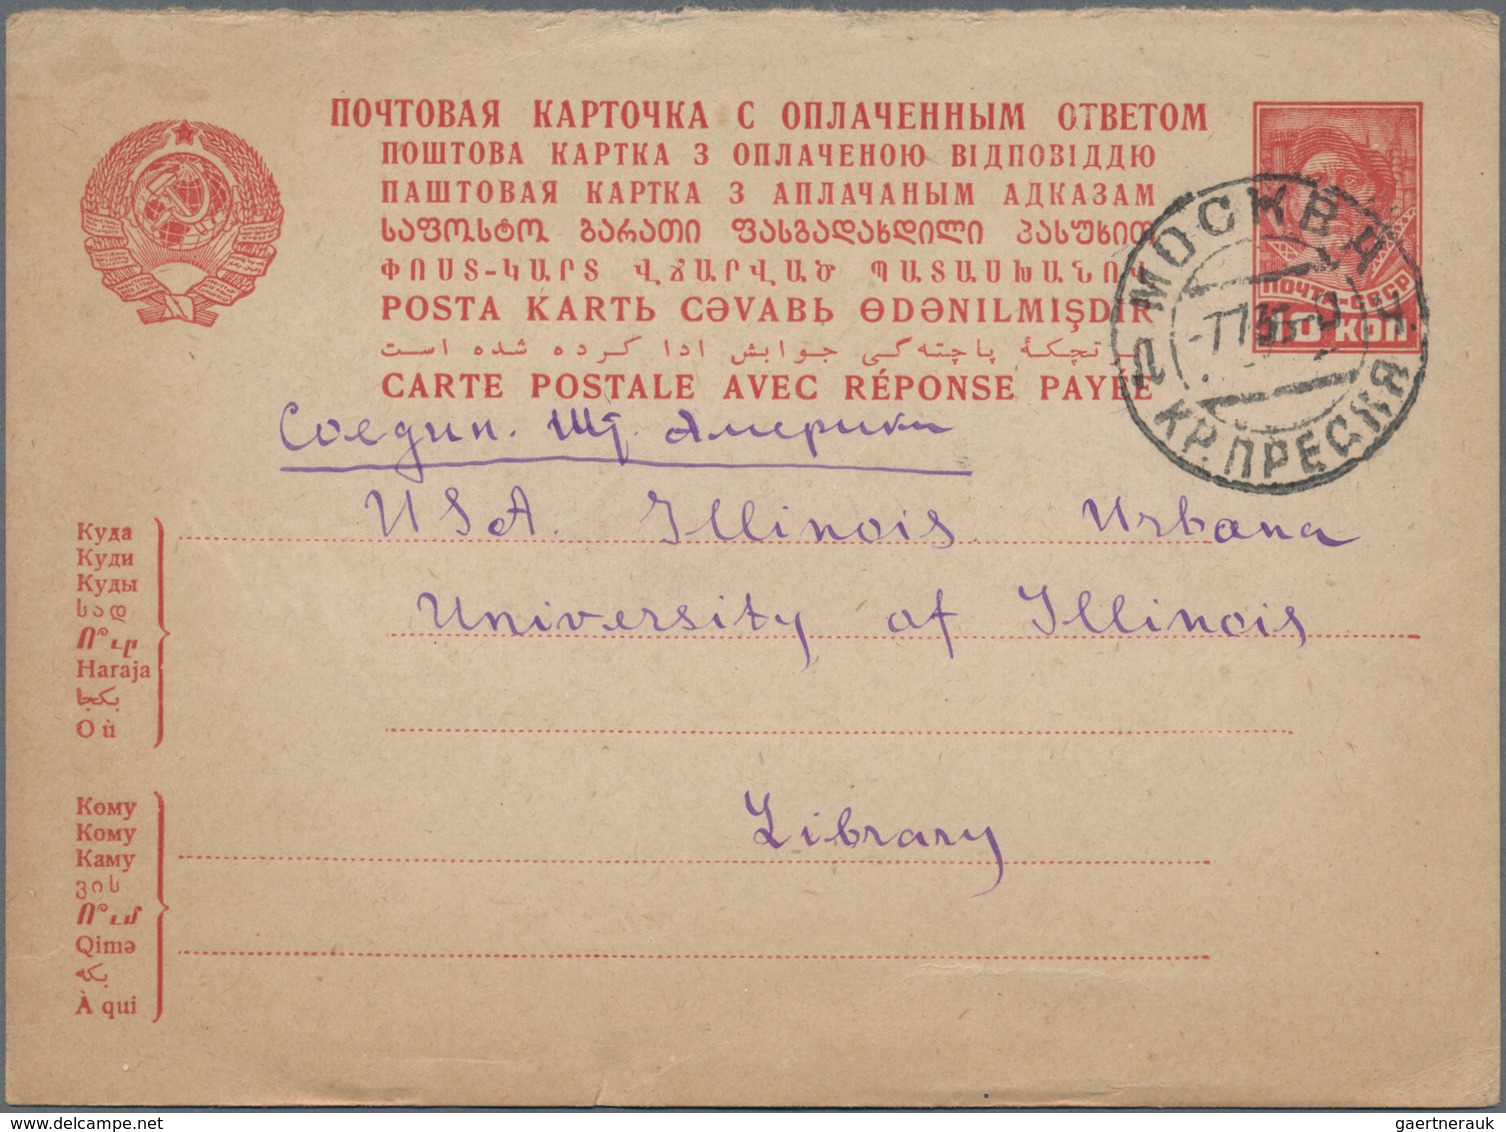 ПОЧТОВАЯ КАРТОЧКА С ОПЛАЧЕННЫМ ОТВЕТОМ
ПОШТОВА КАРТКА З ОПЛАЧЕНОЮ ВІДПОВІДДЮ
ПАШТОВАЯ КАРТКА З АПЛАЧАНЫМ АДКАЗАМ
ᲡᲐᲤᲝᲡᲢᲝ ᲑᲐᲠᲐᲗᲘ ᲤᲐᲡᲒᲐᲓᲐᲮᲓᲘᲚᲘ ᲞᲐᲡᲣᲮᲘᲗ
ՓՈՍՏ-ԿԱՐՏ ՎՃԱՐՎԱԾ ՊԱՏԱՍԽԱՆՈՎ
POSTA KARTЬ CƏVABЬ ӨDƏNILMIŞDIR
پاچتهگی جوابش ادا کرده شده است
CARTE POSTALE AVEC RÉPONSE PAYÉE
ПОЧТА-СССР
10 КОП.
МОСКВА
КР. ПРЕСНЯ
Соедин. Шт. Америки
USA. Illinois Urbana
University of Illinois
Library
Куда
Куди
Куды
სად
Ո՞ւր
Haraja
بکجا
Où
Кому
Кому
Каму
ვის
Ո՞ւմ
Qimə
بکه
À qui
gaertnerauk